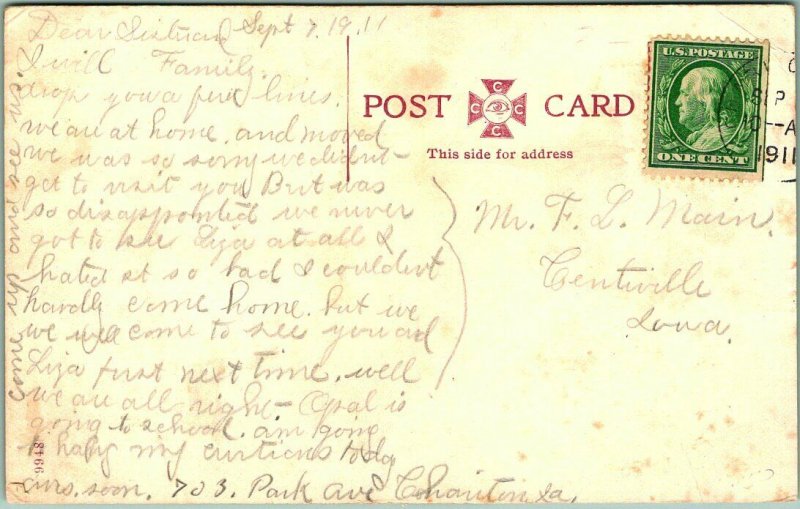 Dear Sister and Sept 7, 1911
I will Family.
drop you a few lines.
we are at home. and moved
we was so sorry we didnt
get to visit you But was
so disappointed we never
got to see Liza at all I
hated it so bad I couldent
hardly come home. but we
we will come to see you ad
Liza first next time. well
we are all right – Opal is
going to school. am going
to hang my curtions today
ans. soon. 703. Park Ave Chariton, Ia,
come up and see us.
9948
POST CARD
C C C C
This side for address
U.S. POSTAGE
ONE CENT
SEP
10--A
1911
Mr. F. L. Main.
Centiville
Iowa.